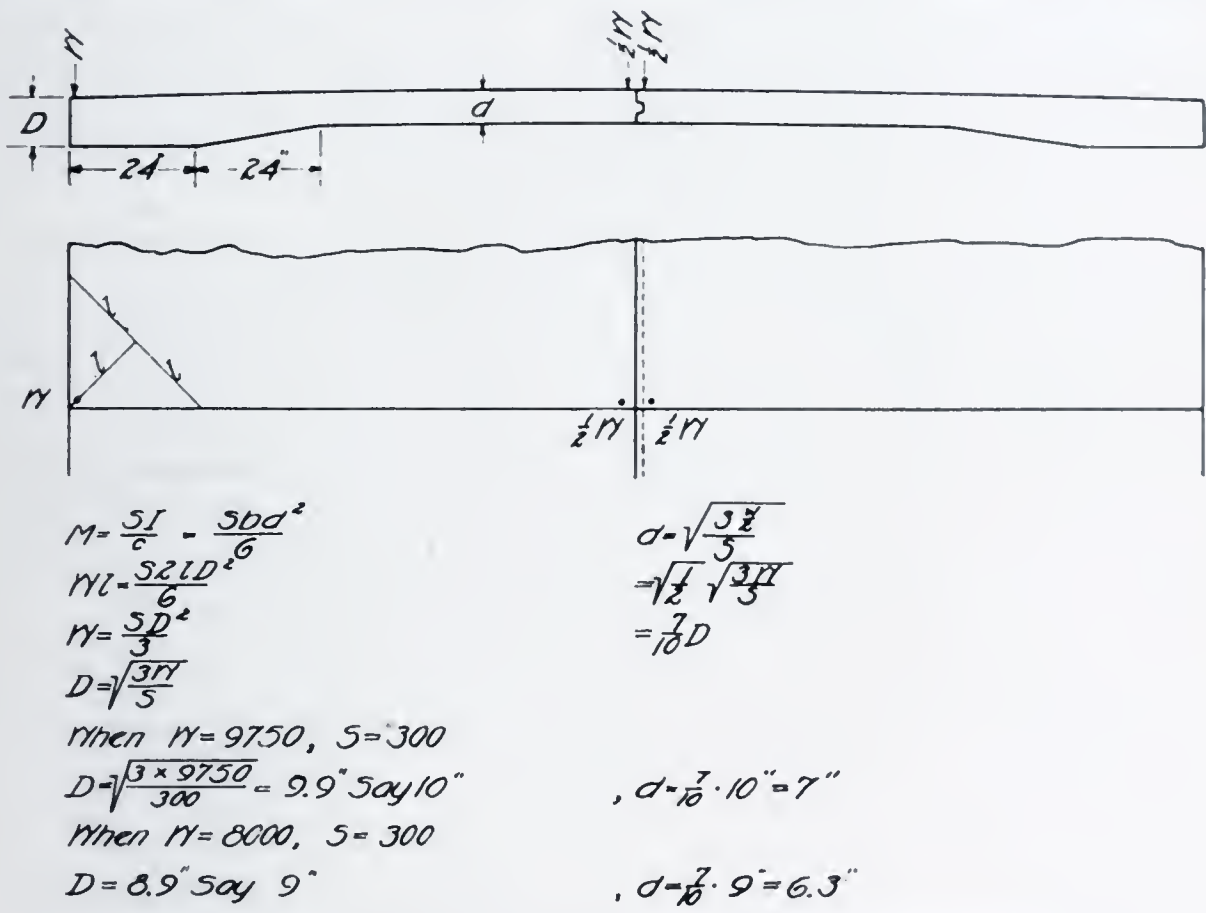 W
½W ½W
D
d
24" 24"
l
l l
W
½W ½W
M = SI/c = Sbd²/6
Wl = S2lD²/6
W = SD²/3
D = √(3W/S)
When W = 9750, S = 300
D = √(3 × 9750/300) = 9.9" Say 10"
When W = 8000, S = 300
D = 8.9" Say 9"
d = √(3 W/2/S)
= √(1/2) √(3W/S)
= 7/10 D
, d = 7/10 · 10" = 7"
, d = 7/10 · 9" = 6.3"